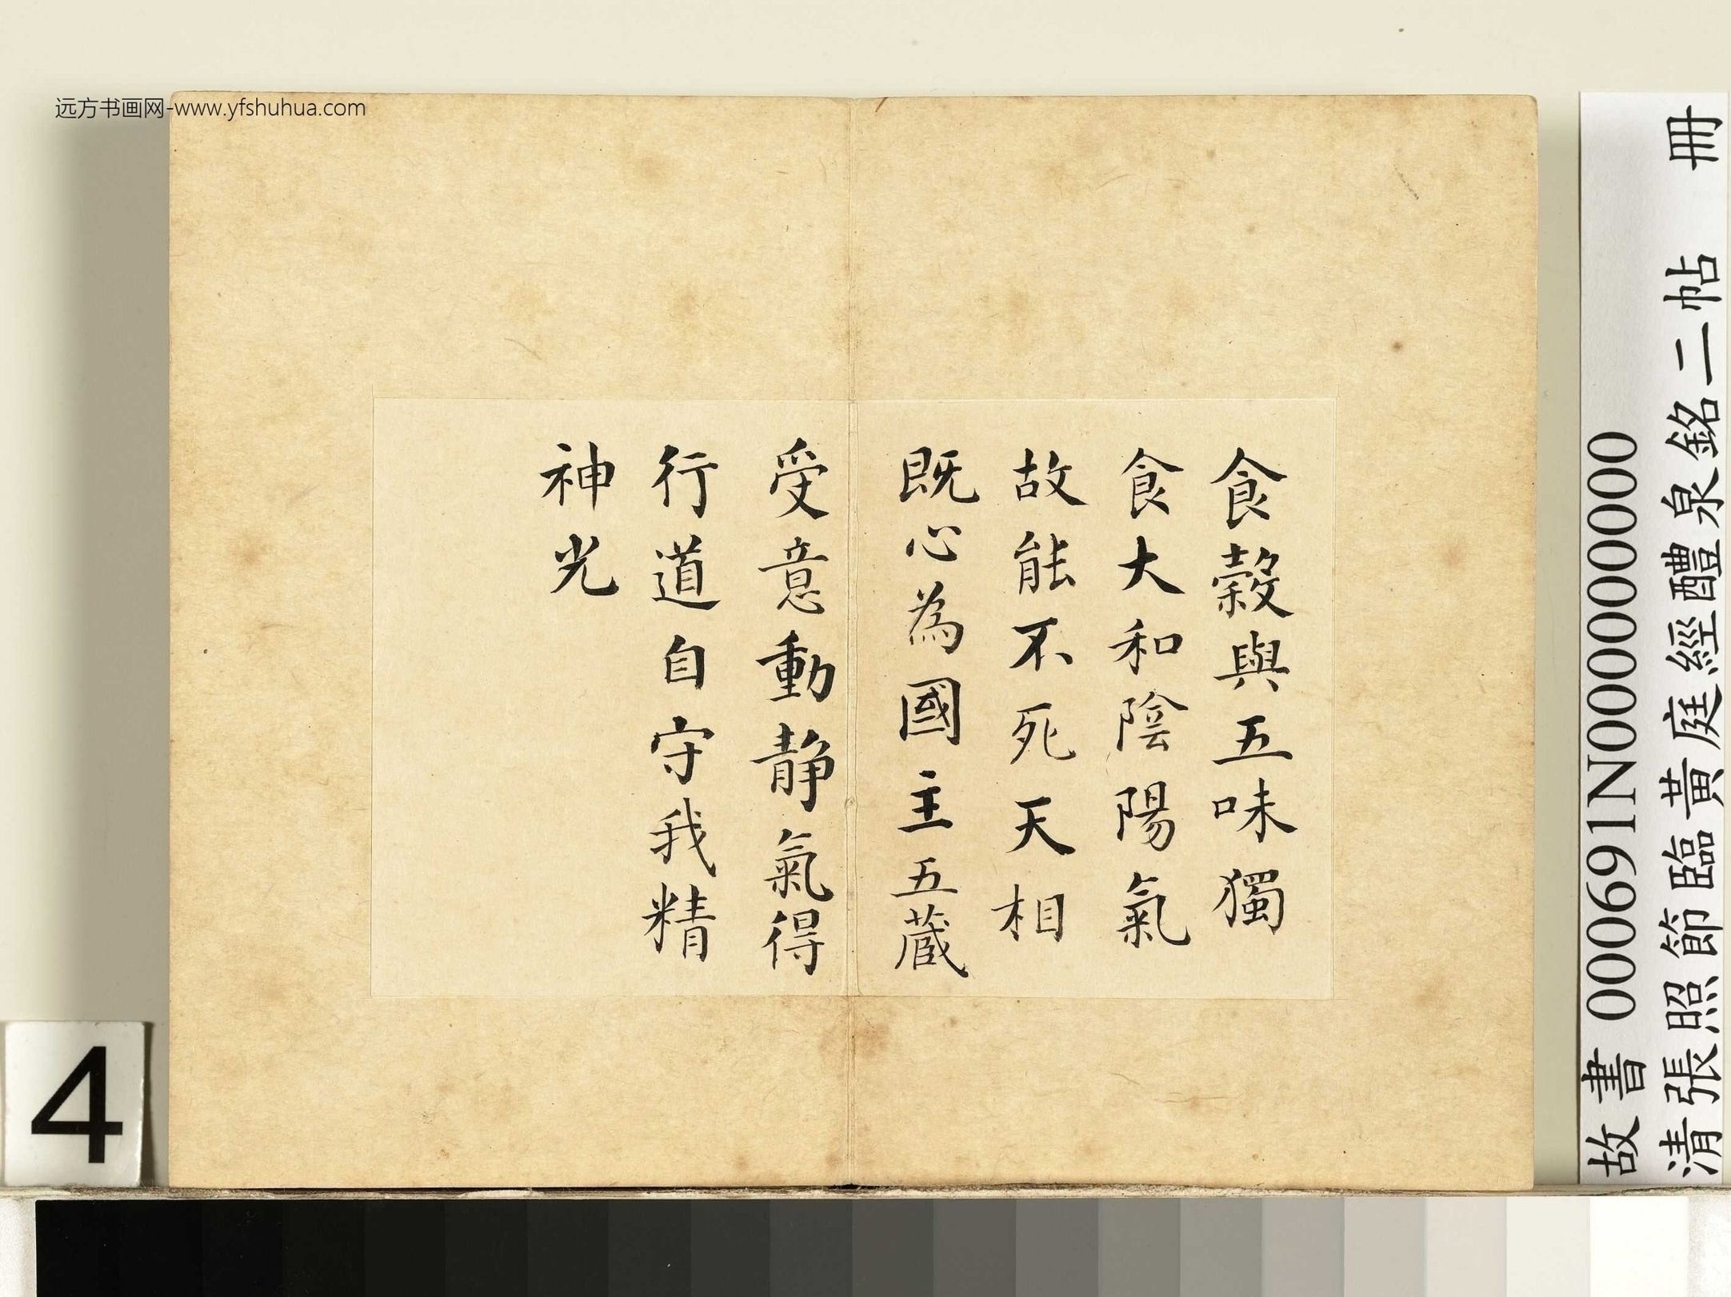 远方书画网-www.yfshuhua.com
食穀與五味獨
食大和陰陽氣
故能不死天相
既心為國主五蔵
受意動静氣得
行道自守我精
神光
故書 000691N000000000
清張照節臨黃庭經醴泉銘二帖 冊
4